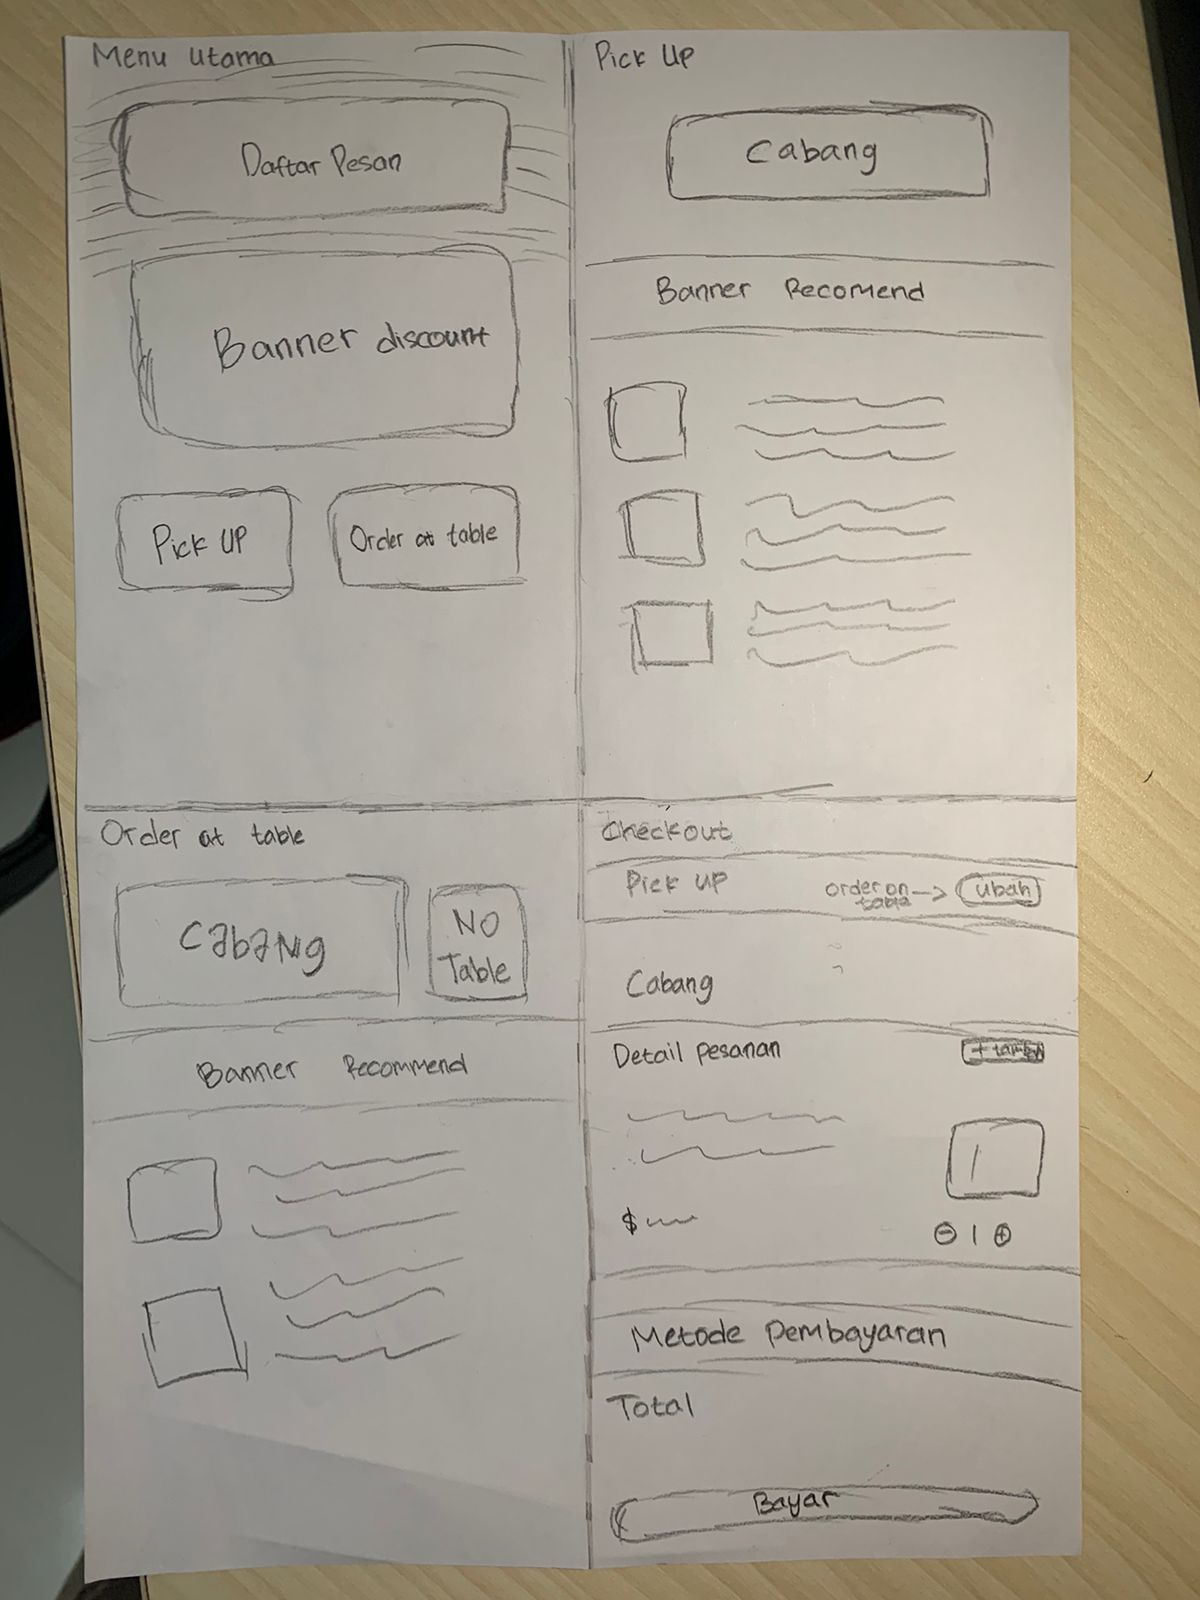 Menu Utama
Daftar Pesan
Banner discount
Pick UP
Order at table
Pick Up
Cabang
Banner Recomend
Order at table
Cabang
NO
Table
Banner Recommend
Checkout
Pick UP
order on
table
ubah
Cabang
Detail pesanan
$
1
Metode Pembayaran
Total
Bayar